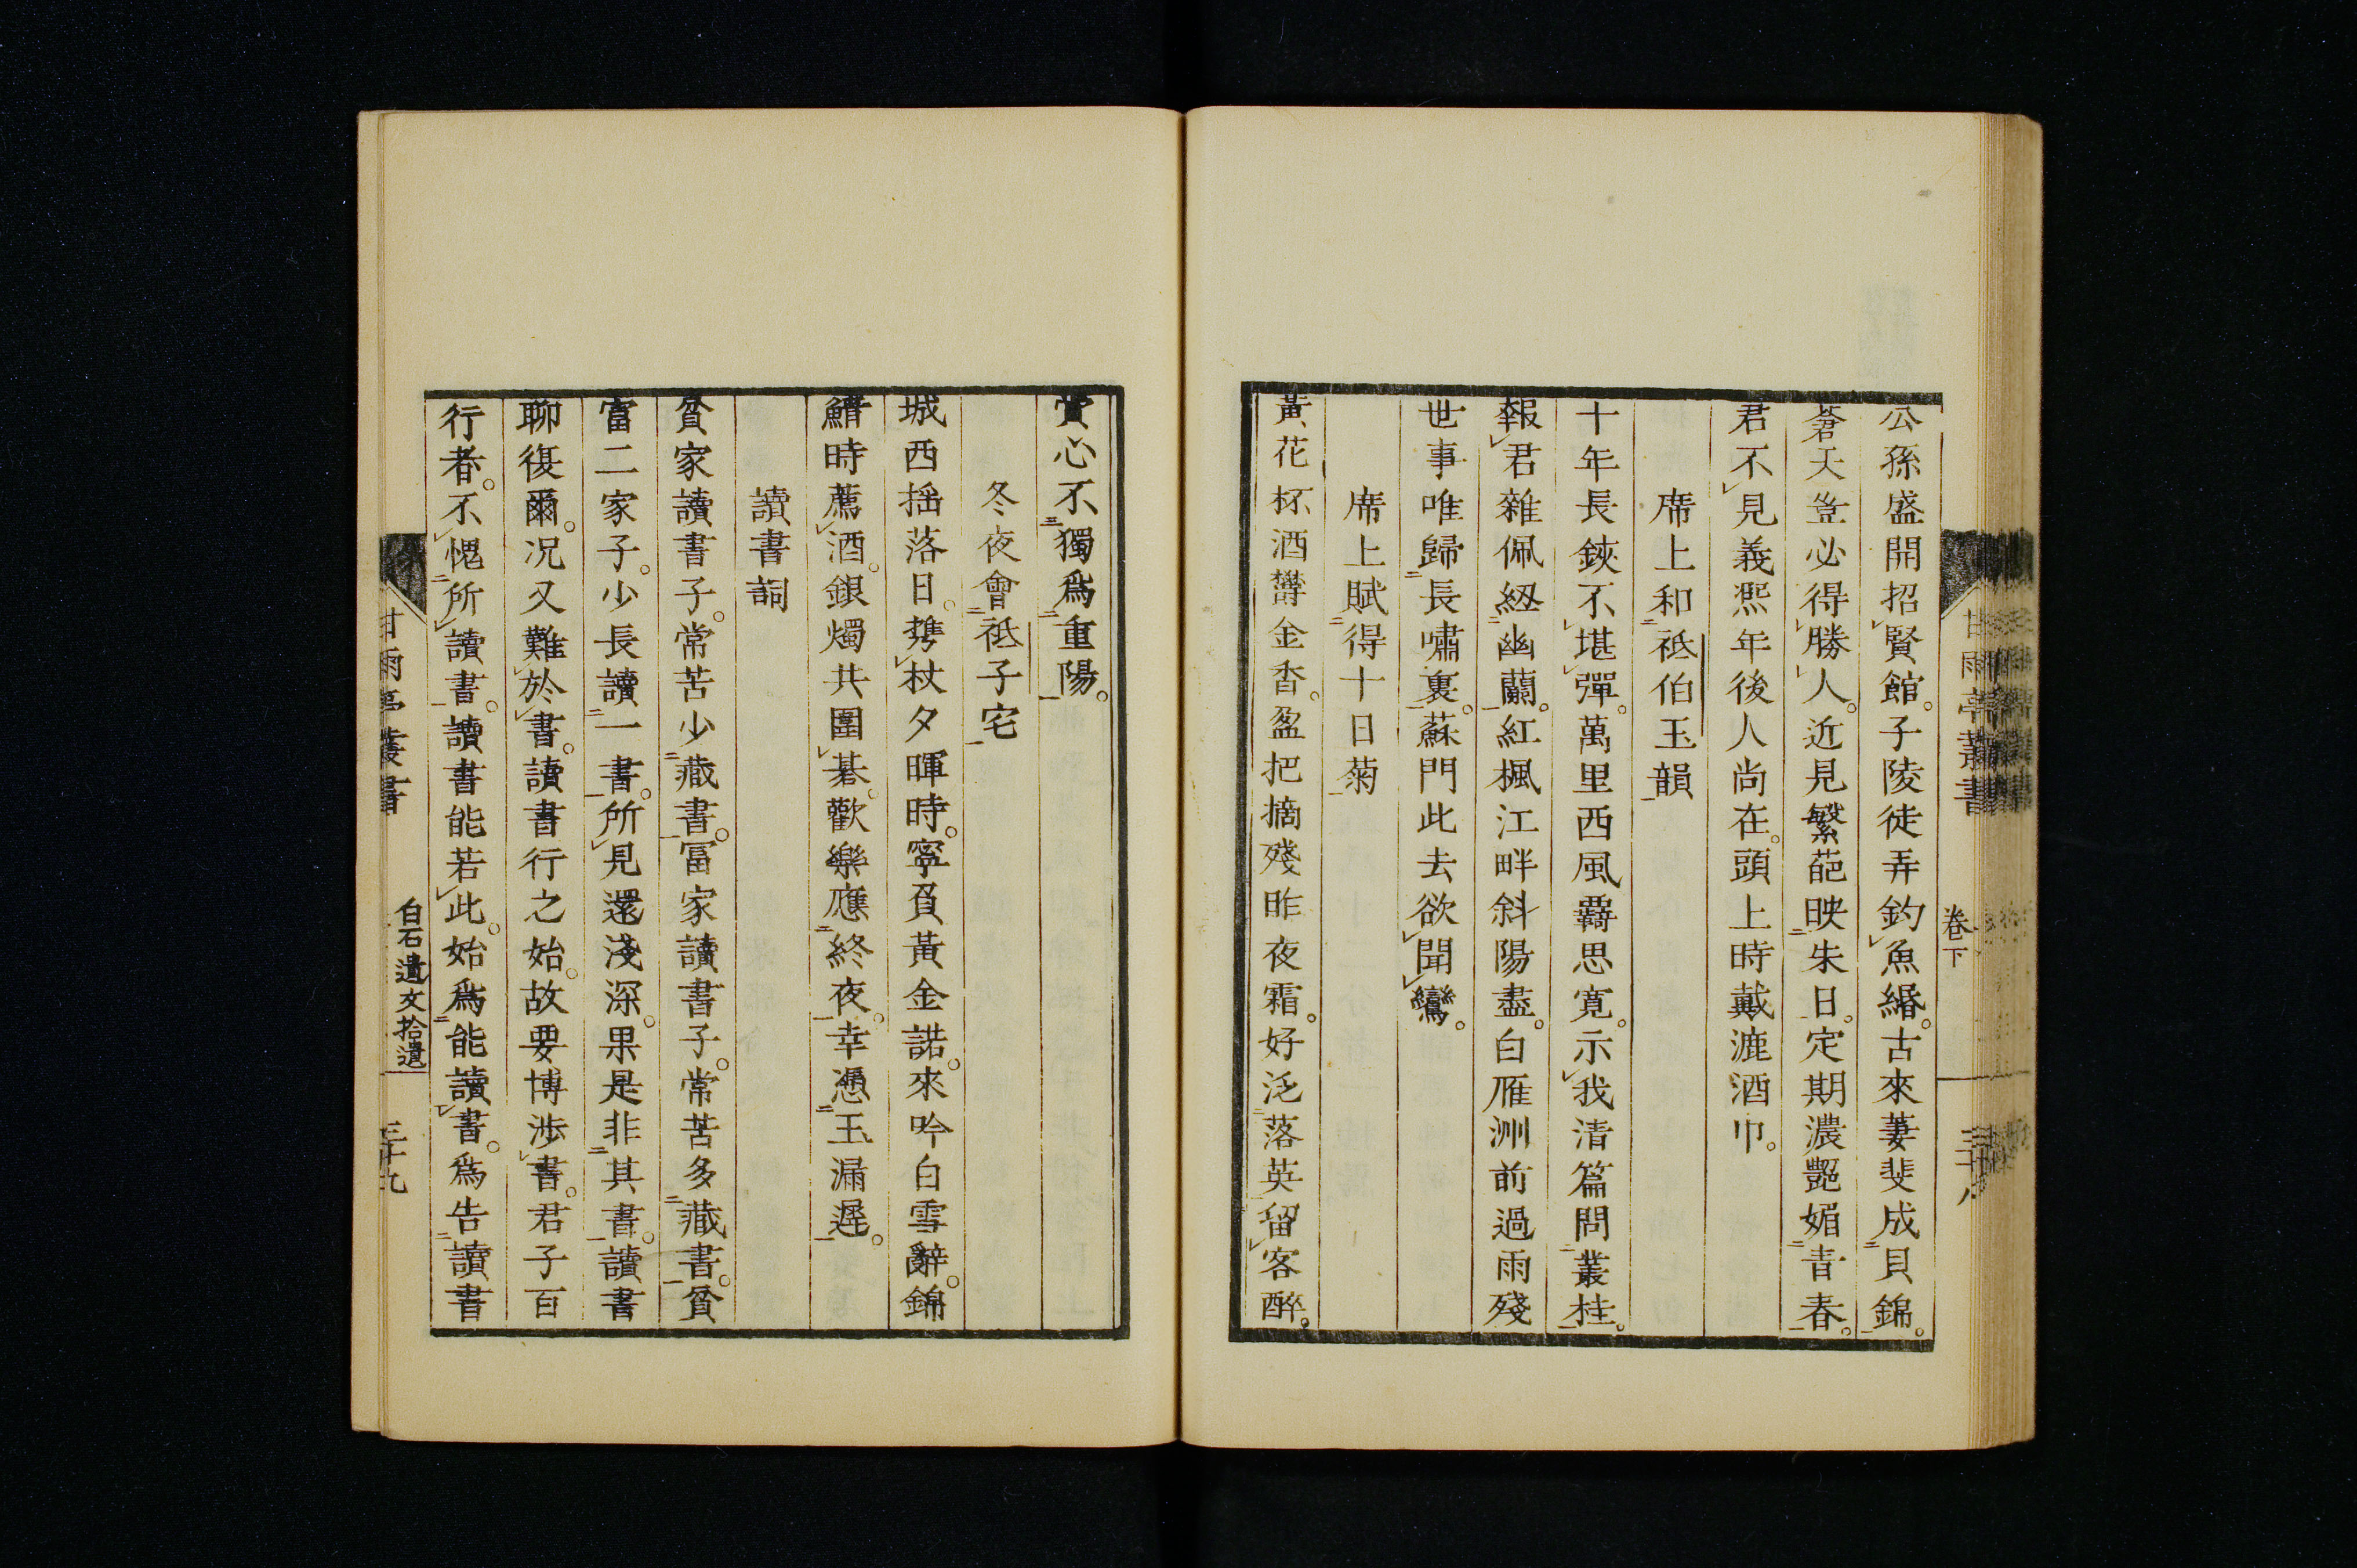 公孫盛開招賢館。子陵徒弄釣魚緡。古來萋斐成貝錦。
蒼天豈必得勝人。近見繁葩映朱日。定期濃艷媚青春。
君不見義熙年後人尚在。頭上時戴漉酒巾。
席上和祗伯玉韻
十年長鋏不堪彈。萬里西風覉思寛。示我清篇問叢桂。
報君雜佩紉幽蘭。紅楓江畔斜陽盡。白雁洲前過雨殘
世事唯歸長嘯裏。蘇門此去欲聞鸞。
席上賦得十日菊
黃花杯酒欝金香。盈把摘殘昨夜霜。好泛落英留客醉。
甘雨亭叢書
卷下
三十八
賞心不獨爲重陽。
冬夜會祗子宅
城西揺落日。携杖夕暉時。寧負黃金諾。來吟白雪辭。錦
鰭時薦酒。銀燭共圍碁。歡樂應終夜。幸憑玉漏遲。
讀書詞
貧家讀書子。常苦少藏書。冨家讀書子。常苦多藏書。貧
富二家子。少長讀一書。所見還淺深。果是非其書。讀書
聊復爾。況又難於書。讀書行之始。故要博渉書。君子百
行者。不愧所讀書。讀書能若此。始爲能讀書。爲告讀書
甘雨亭叢書
白石遺文拾遺
三十九